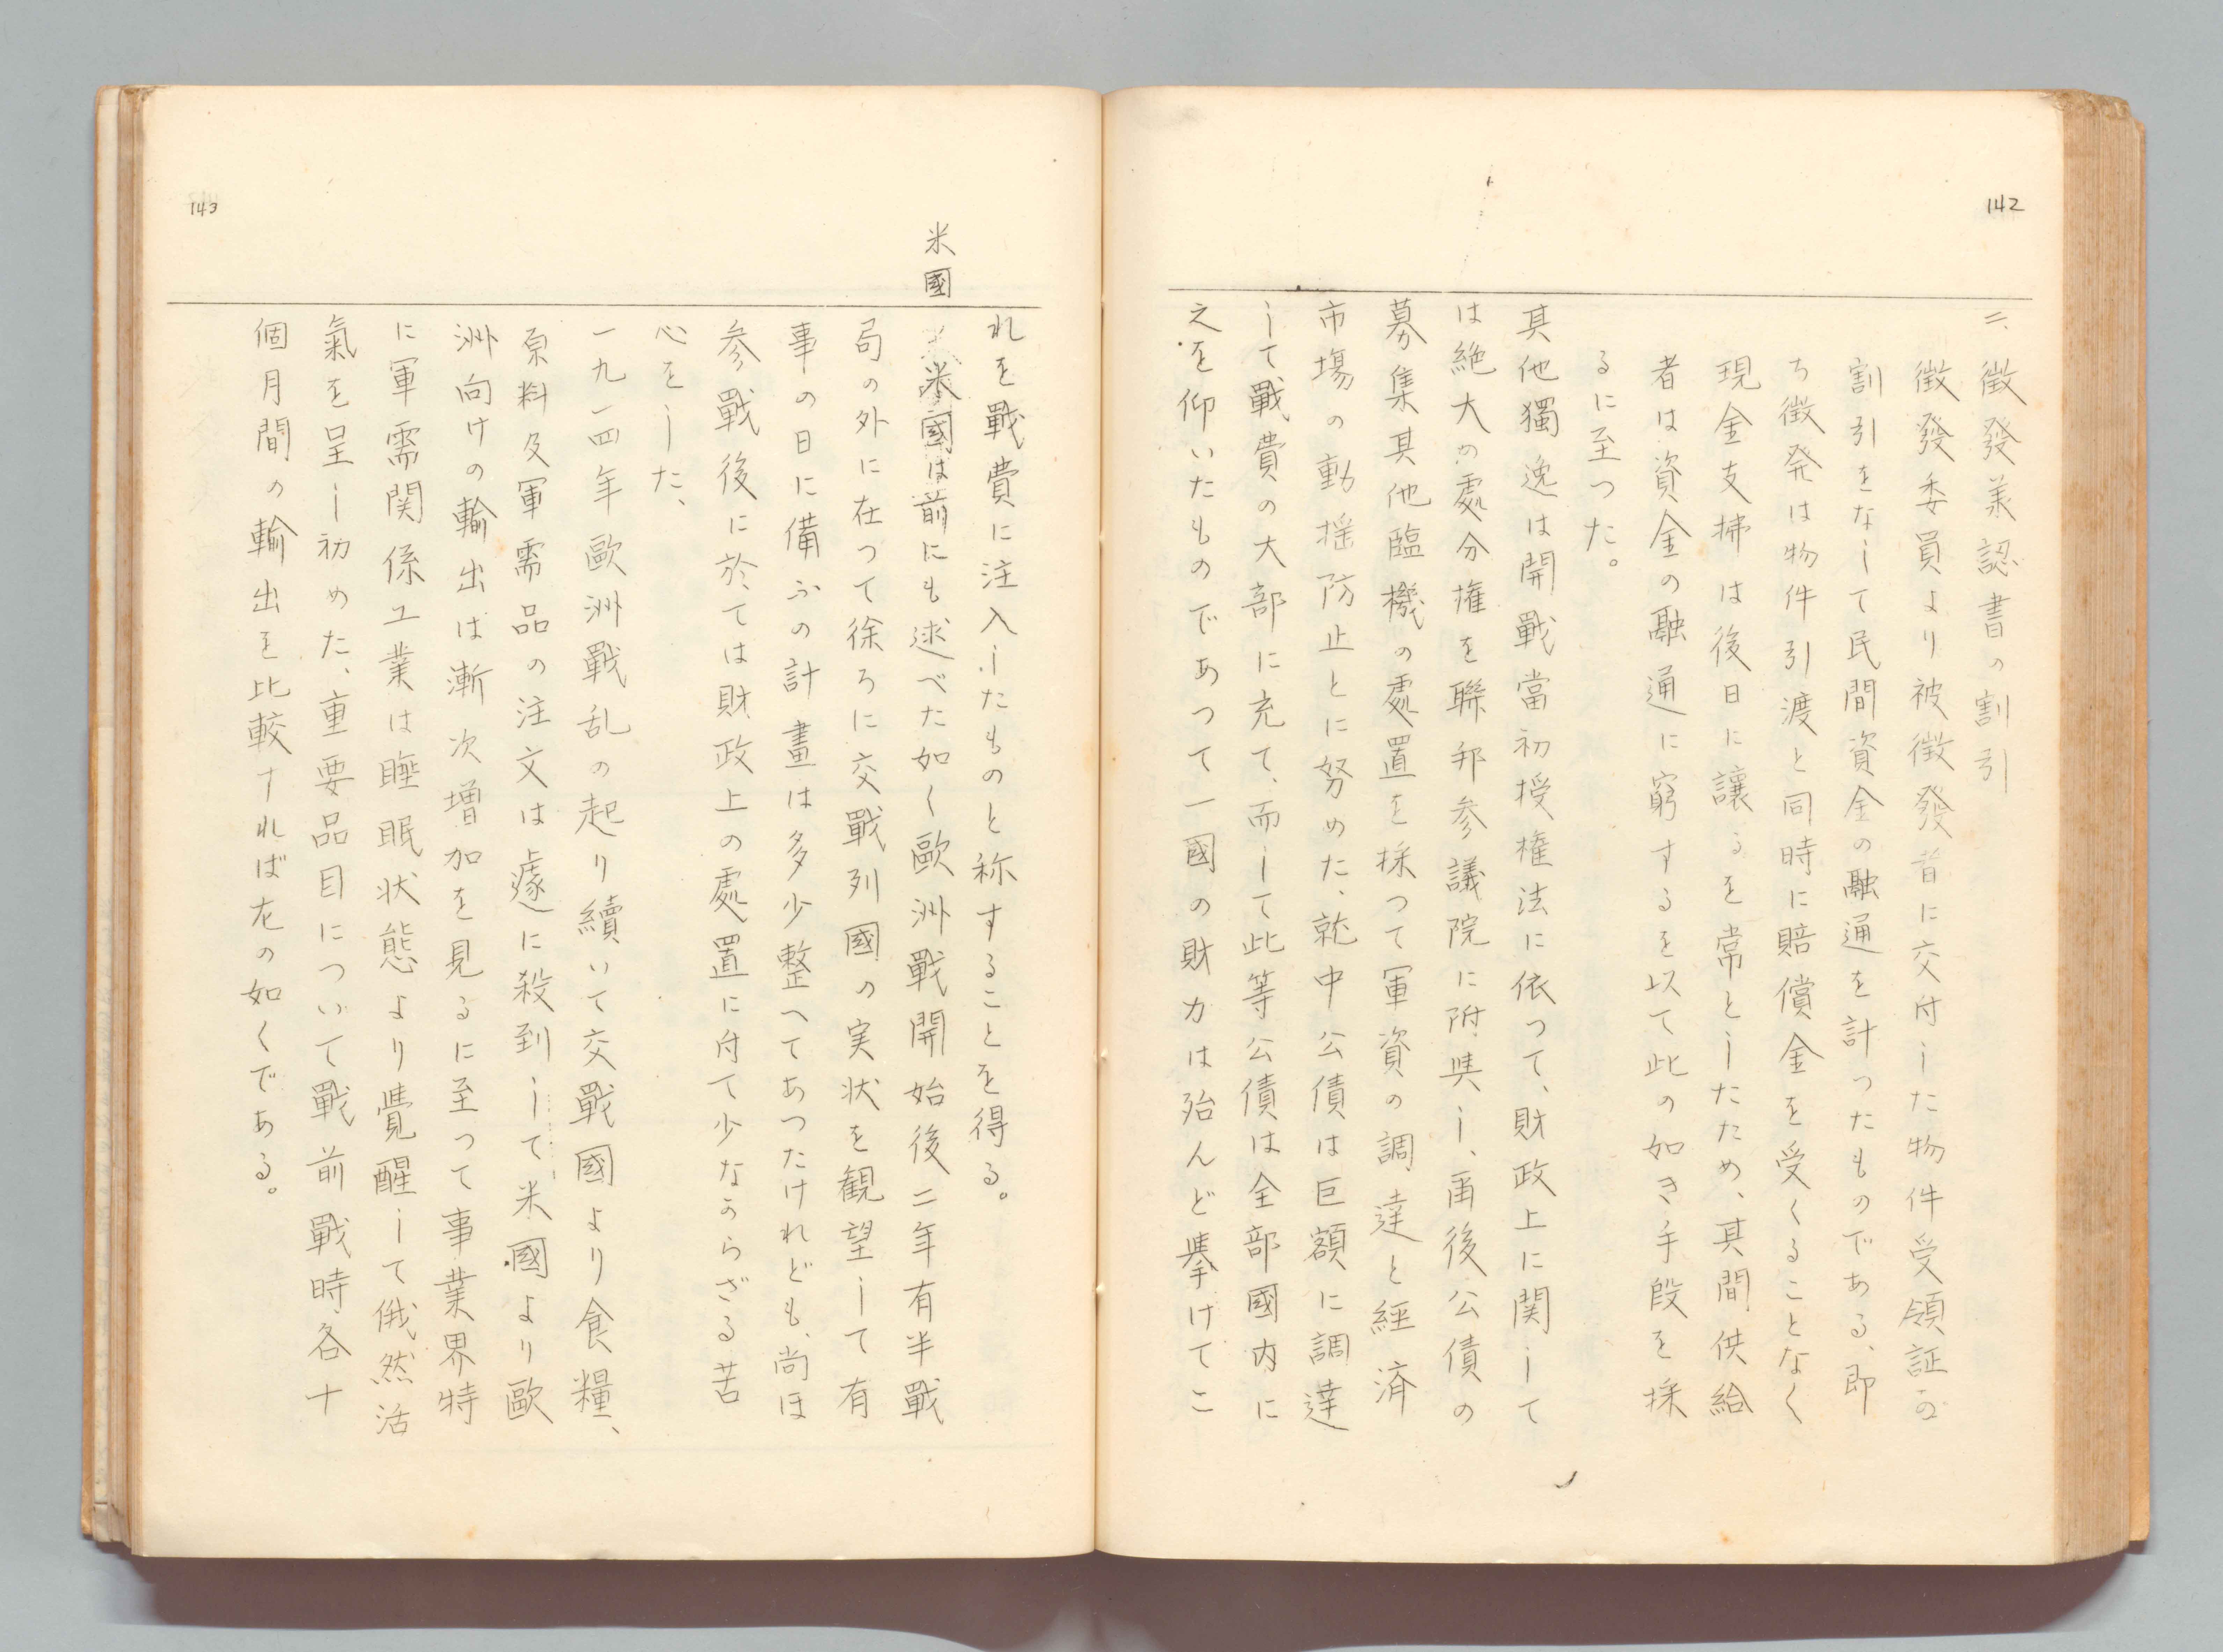 142
二、徴發業認書の割引
徴發委員より被徴發者に交付した物件受領証の
割引をなして民間資金の融通を計つたものである、即
ち徴発は物件引渡と同時に賠償金を受くることなく
現金支拂は後日に讓るを常としたため、其間供給
者は資金の融通に窮するを以て此の如き手段を採
るに至つた。
其他獨逸は開戰當初授権法に依つて、財政上に関して
は絶大の處分権を聯邦参議院に附與し、爾後公債の
募集其他臨機の處置を採つて軍資の調達と経済
市場の動揺防止とに努めた、就中公債は巨額に調達
して戰費の大部に充て、而して此等公債は全部國内に
之を仰いたものであつて一國の財力は殆んど擧けてこ
143
れを戰費に注入したものと称することを得る。
米國
米國は前にも述べた如く歐洲戰開始後二年有半戰
局の外に在つて徐ろに交戰列國の実状を観望して有
事の日に備ふの計畫は多少整へてあつたけれども、尚ほ
参戰後に於ては財政上の處置に付て少なからざる苦
心をした、
一九一四年歐洲戰乱の起り續いて交戰國より食糧、
原料及軍需品の注文は遽に殺到して米國より歐
洲向けの輸出は漸次増加を見るに至つて事業界特
に軍需関係工業は睡眠状態より覺醒して俄然活
氣を呈し初めた、重要品目について戰前戰時各十
個月間の輸出を比較すれば左の如くである。